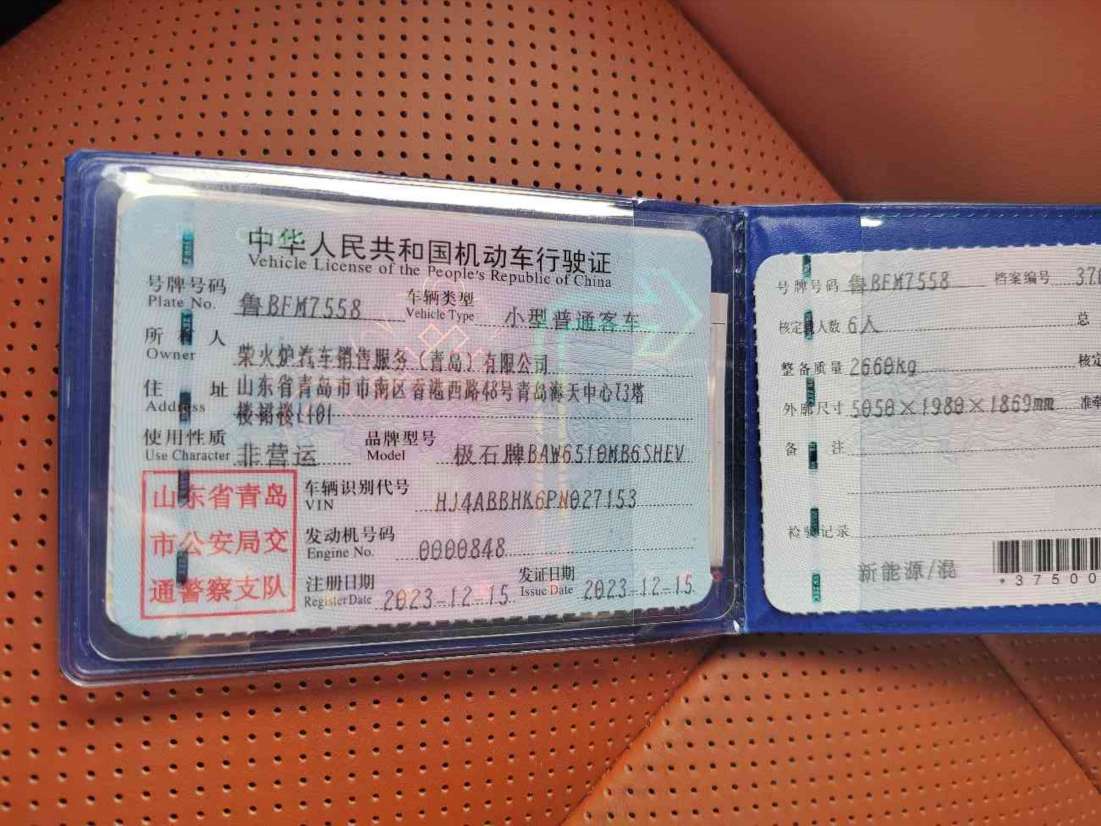 中华人民共和国机动车行驶证
Vehicle License of the People's Republic of China
号牌号码 鲁BFM7558 车辆类型 小型普通客车
Plate No. Vehicle Type
所有人 柴火炉汽车销售服务（青岛）有限公司
Owner
住址 山东省青岛市市南区香港西路48号青岛海天中心T3塔
Address 楼裙楼L1-101
使用性质 非营运 品牌型号 极石牌BAW6510MB6SHEV
Use Character Model
山东省青岛
市公安局交
通警察支队
车辆识别代号 HJ4ABBHK6PN027153
VIN
发动机号码 0000848
Engine No.
注册日期 2023-12-15 发证日期 2023-12-15
Register Date Issue Date
号牌号码 鲁BFM7558 档案编号 370
核定载人数 6人 总
整备质量 2660kg 核定
外廓尺寸 5050×1980×1869mm 准牵
备注
检验记录
新能源/混
*37500